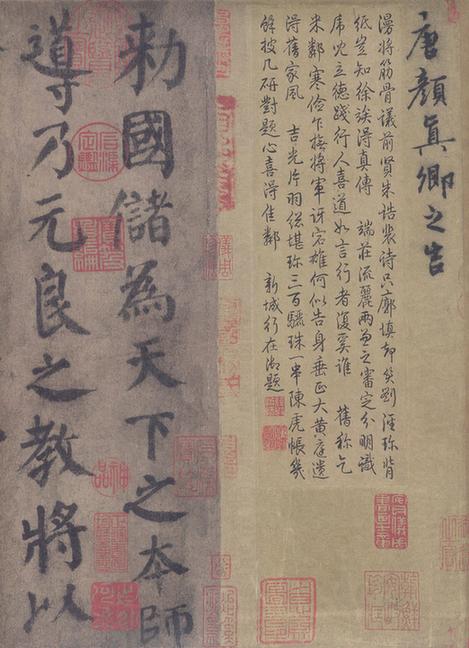 唐顏真卿之告
漫將筋骨議前賢朱誥裴詩只廓填却笑劉涇珎背
紙豈知徐族得真傳 端莊流麗兩兼之審定分明識
立德踐行人喜道如言行者復奚誰 舊称乞
米鄰寒儉乍 將軍訝宕雄何似告身垂正大黄庭遺
得舊家風 吉光片羽總堪珎三百驪珠一串陳虎帳幾
餘披几研對題心喜得佳鄰 新城行在御題
勑國儲為天下之本師
導乃元良之教將以